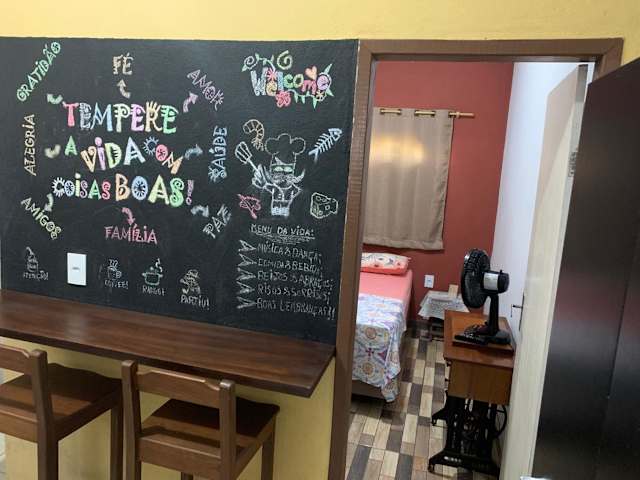 GRATIDÃO
FÉ
AMOR
Welcome
ALEGRIA
TEMPERE
A VIDA COM
COISAS BOAS!
SAÚDE
AMIGOS
FAMÍLIA
PAZ
MENU DA VIDA:
MÚSICA & DANÇA;
COMIDA & BEBIDA;
BEIJOS & ABRAÇOS;
RISOS & SORRISOS;
BOAS LEMBRANÇAS!!
COFFEE!